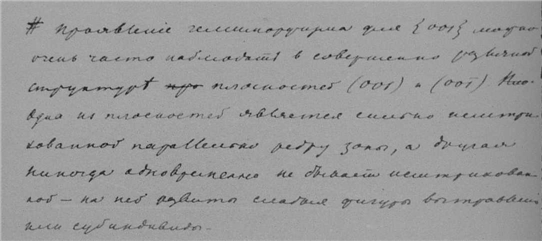 # Проявленіе гемиморфизма для {001} можно
очень часто наблюдать в совершенно различной
структурѣ про плоскостей (001) и (001̄)
одна из плоскостей является сильно исштри-
хованной параллельно ребру зоны, а другая
никогда одновременно не бывает исштрихован-
ной – на ней развиты слабые фигуры вытравленія
или субиндивиды.